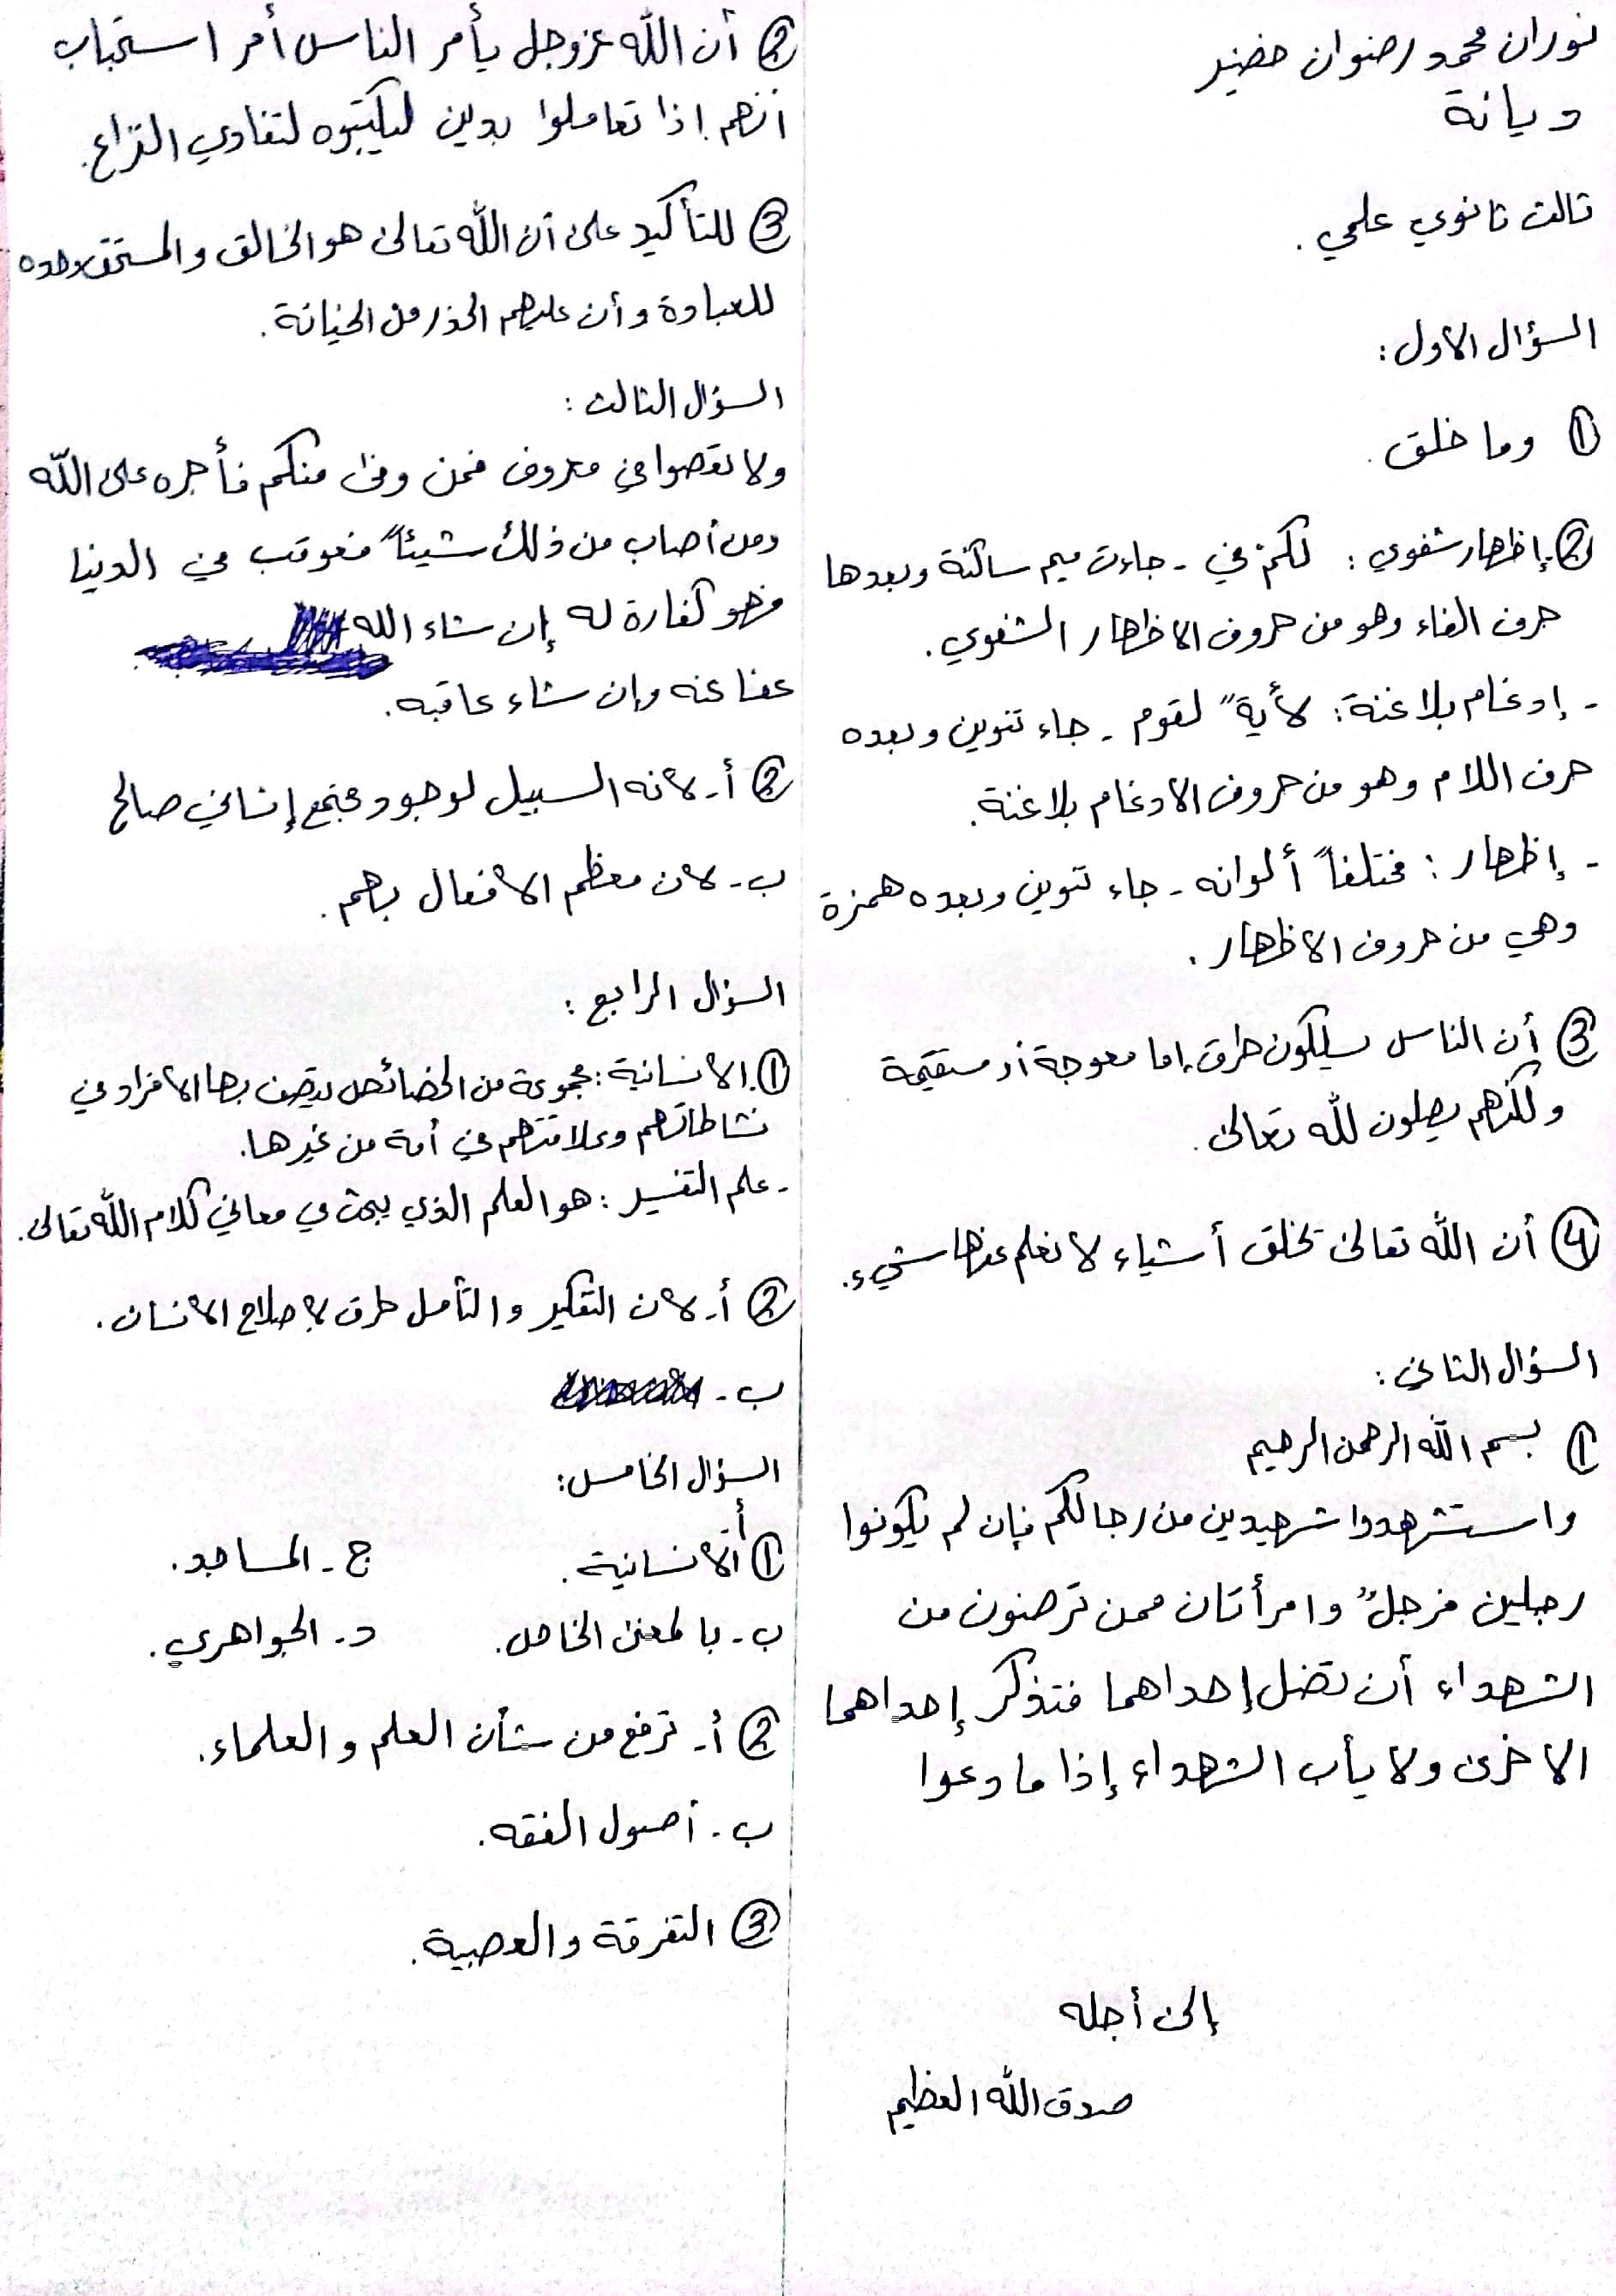 نوران محمد رضوان خضير
ديانة
ثالث ثانوي علمي.
السؤال الاول:
① وما خلق.
② إظهار شفوي: لكم في - جاءت ميم ساكنة وبعدها
حرف الفاء وهو من حروف الاظهار الشفوي.
- إدغام بلا غنة: لأيةً لقوم - جاء تنوين وبعده
حرف اللام وهو من حروف الادغام بلا غنة.
- إظهار: مختلفاً ألوانه - جاء تنوين وبعده همزة
وهي من حروف الاظهار.
③ أن الناس يسلكون طرق إما معوجة أو مستقيمة
ولكنهم يصلون لله تعالى.
④ أن الله تعالى يخلق أشياء لا نعلم عنها شيء.
السؤال الثاني:
① بسم الله الرحمن الرحيم
واستشهدوا شهيدين من رجالكم فإن لم يكونوا
رجلين فرجلٌ وامرأتان ممن ترضون من
الشهداء أن تضل إحداهما فتذكر إحداهما
الاخرى ولا يأب الشهداء إذا ما دعوا
إلى أجله
صدق الله العظيم
② أن الله عز وجل يأمر الناس أمر استحباب
أنهم إذا تعاملوا بدين ليكتبوه لتفادي النزاع.
③ للتأكيد على أن الله تعالى هو الخالق والمستحق وحده
للعبادة وأن عليهم الحذر من الخيانة.
السؤال الثالث:
ولا تعصوا في معروف فمن وفى منكم فأجره على الله
ومن أصاب من ذلك شيئاً فعوقب في الدنيا
فهو كفارة له إن شاء الله
عفا عنه وإن شاء عاقبه.
② أ- لانه السبيل لوجود مجتمع إنساني صالح
ب- لان معظم الافعال بهم.
السؤال الرابع:
① الانسانية: مجموعة من الخصائص يتصف بها الافراد في
نشاطاتهم وعلاقتهم في أمة من غيرها.
- علم التفسير: هو العلم الذي يبحث في معاني كلام الله تعالى.
② أ- لان التفكير والتأمل طرق لإصلاح الانسان.
ب-
السؤال الخامس:
① أ- الانسانية. ج- المساجد.
ب- بالمعنى الخاص. د- الجواهري.
② أ- ترفع من شأن العلم والعلماء.
ب- أصول الفقه.
③ التفرقة والعصبية.